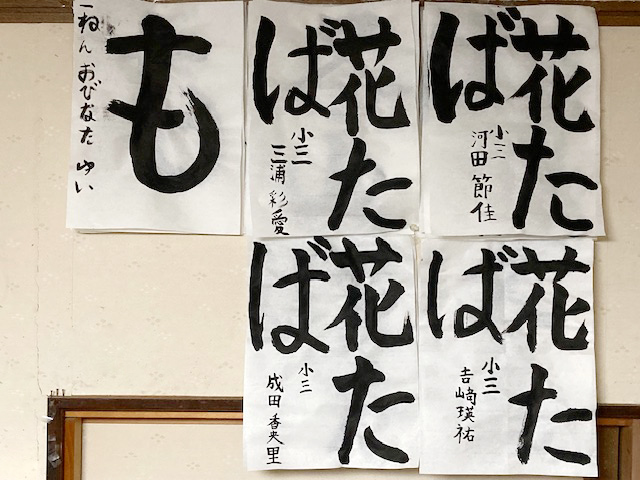 花た
ば
小三
河田節佳
花た
ば
小三
三浦彩愛
も
一ねんおびなたゆい
花た
ば
小三
吉崎瑛祐
花た
ば
小三
成田香央里